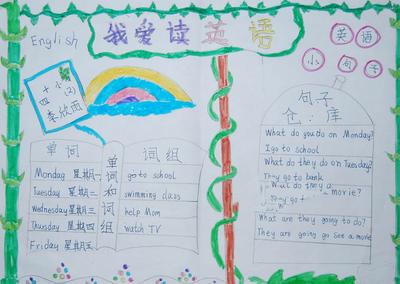 English
我爱读英语
英语
小句子
十小
四(2)
李欣雨
单词
Monday 星期一
Tuesday 星期二
Wednesday 星期三
Thursday 星期四
Friday 星期五
单词和词组
词组
go to school
swimming class
help Mom
watch TV
句子
仓:库
What do you do on Monday?
I go to school
What do they do on Tuesday?
They go to bank
What do they a movie?
They go t
What are they going to do?
They are going go see a movie